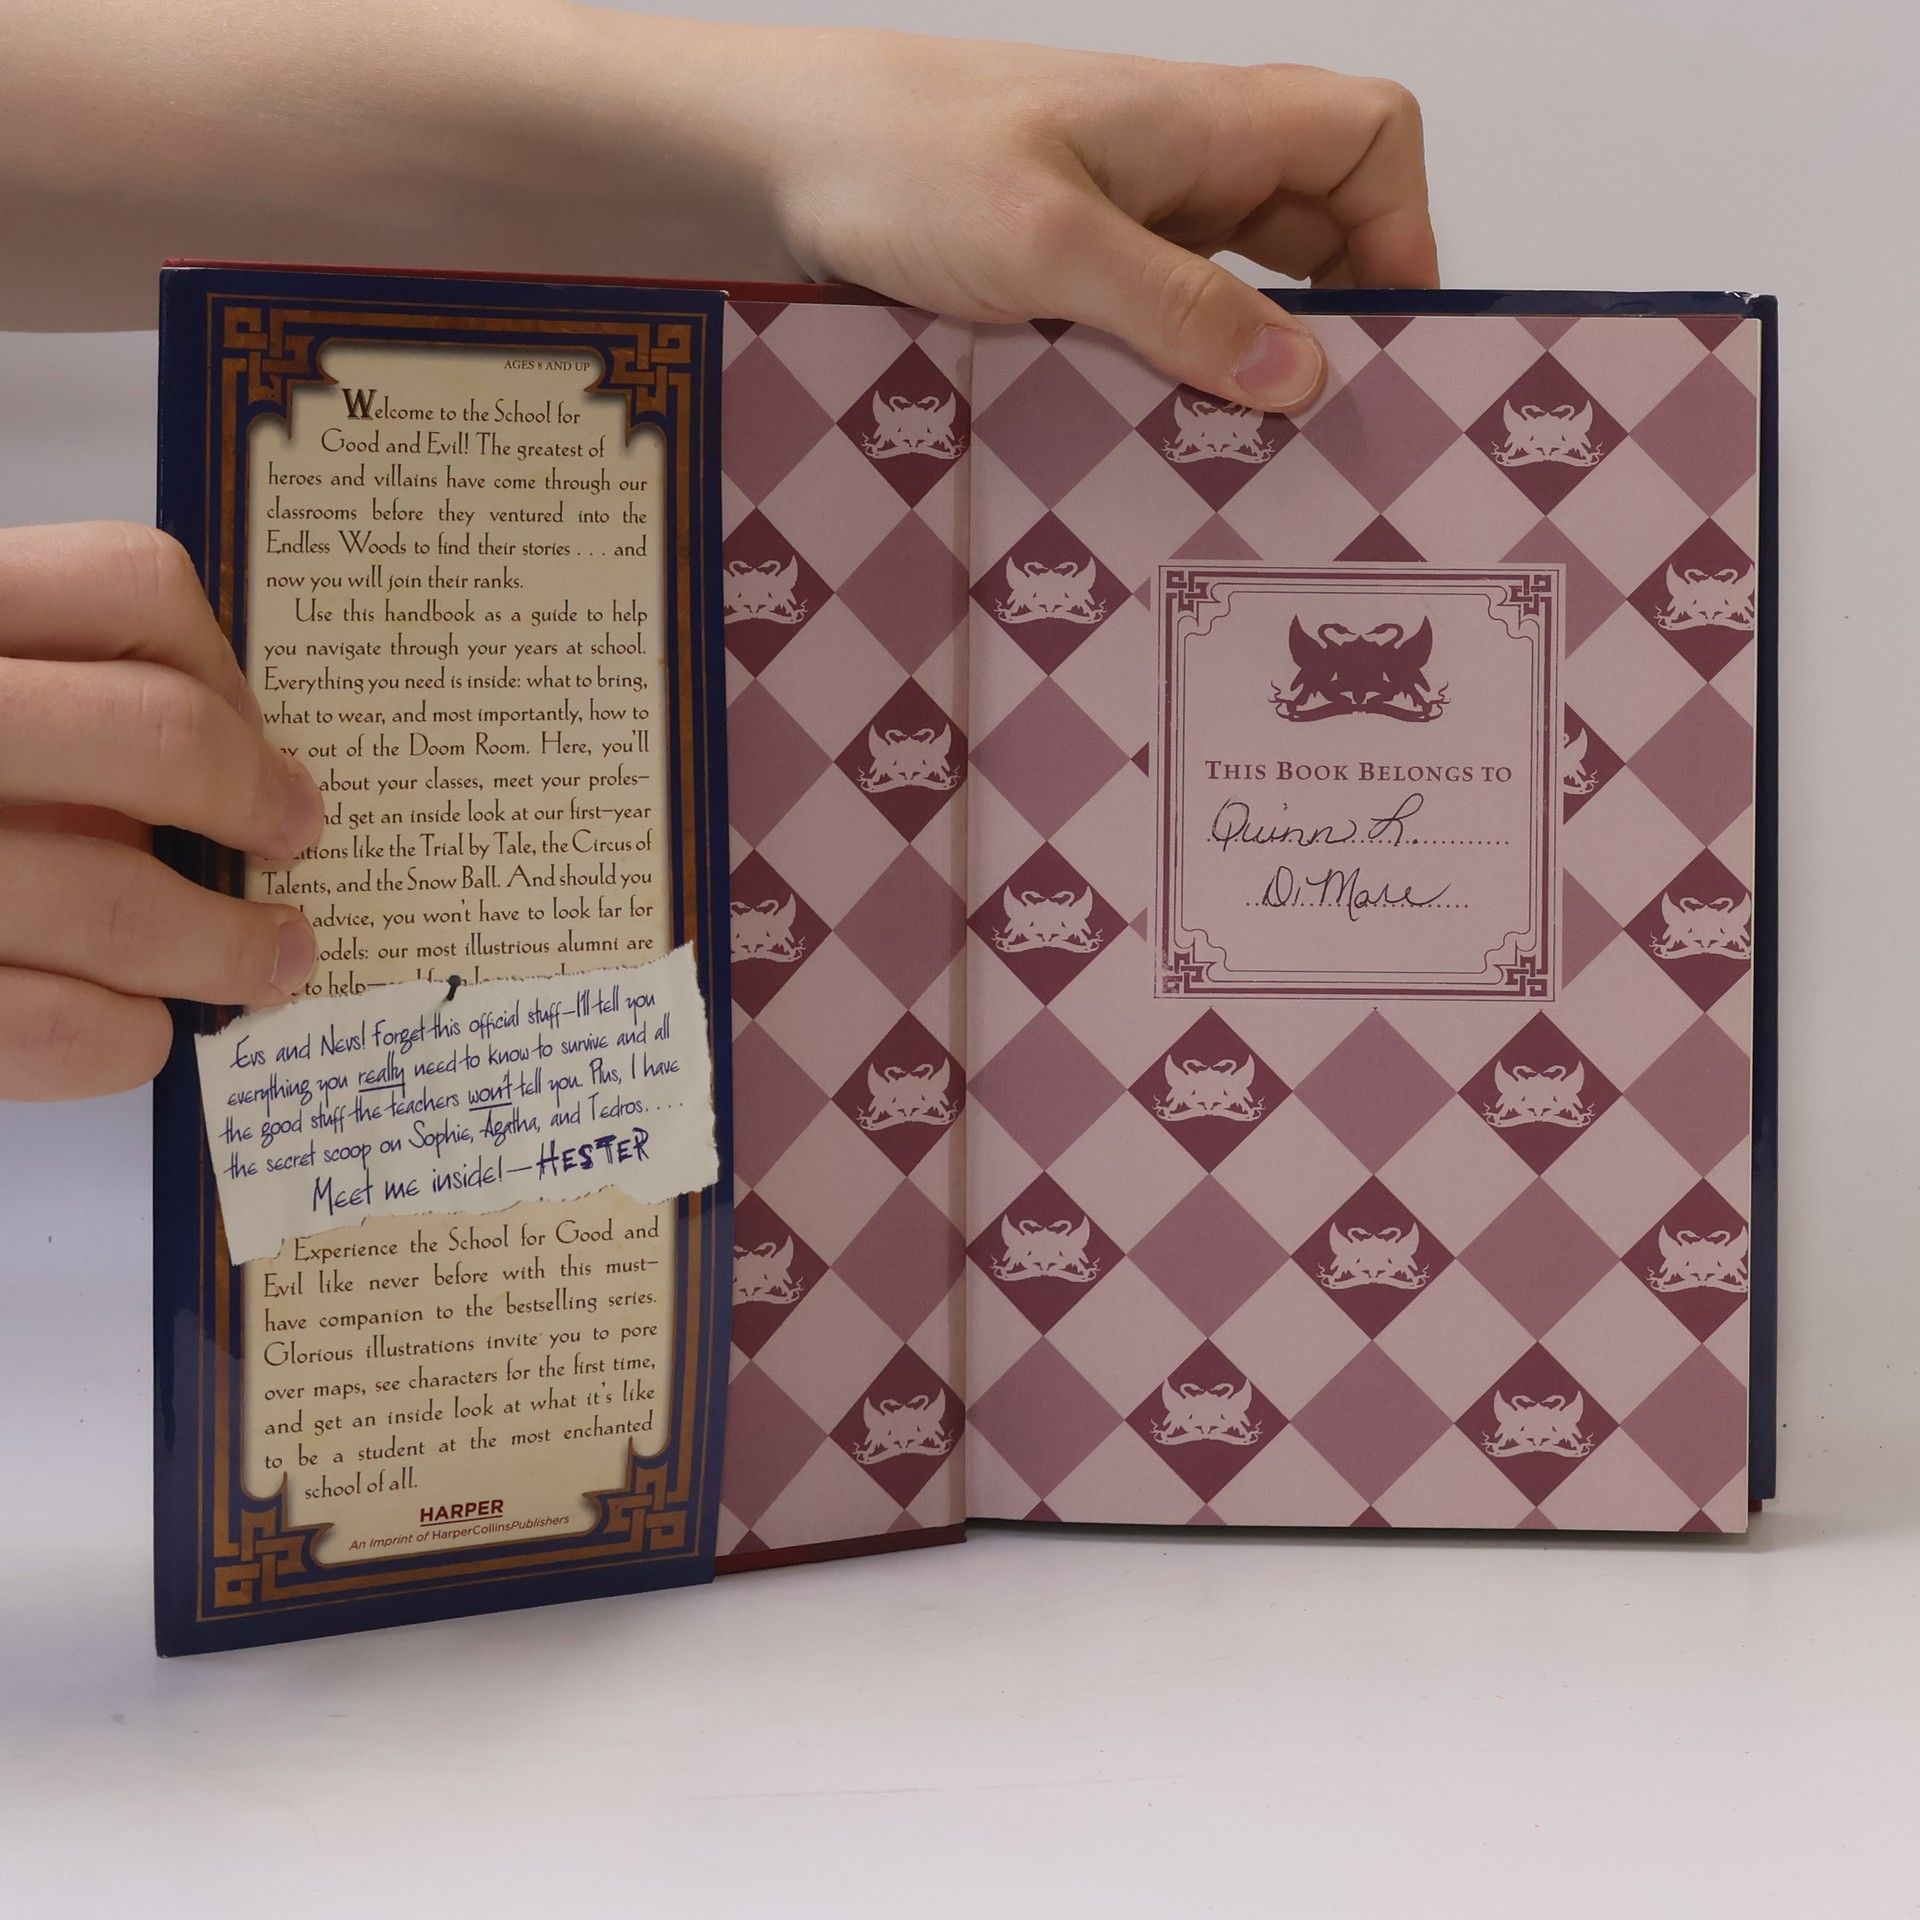 AGES 8 AND UP
Welcome to the School for
Good and Evil! The greatest of
heroes and villains have come through our
classrooms before they ventured into the
Endless Woods to find their stories . . . and
now you will join their ranks.
Use this handbook as a guide to help
you navigate through your years at school.
Everything you need is inside: what to bring,
what to wear, and most importantly, how to
out of the Doom Room. Here, you'll
about your classes, meet your profes-
get an inside look at our first-year
like the Trial by Tale, the Circus of
Talents, and the Snow Ball. And should you
advice, you won't have to look far for
our most illustrious alumni are
to help—
Evs and Nevs! Forget this official stuff—I'll tell you
everything you really need to know to survive and all
the good stuff the teachers won't tell you. Plus, I have
the secret scoop on Sophie, Agatha, and Tedros. . . .
Meet me inside!—HESTER
Experience the School for Good and
Evil like never before with this must-
have companion to the bestselling series.
Glorious illustrations invite you to pore
over maps, see characters for the first time,
and get an inside look at what it's like
to be a student at the most enchanted
school of all.
HARPER
An Imprint of HarperCollinsPublishers
THIS BOOK BELONGS TO
Quinn L.
DiMare